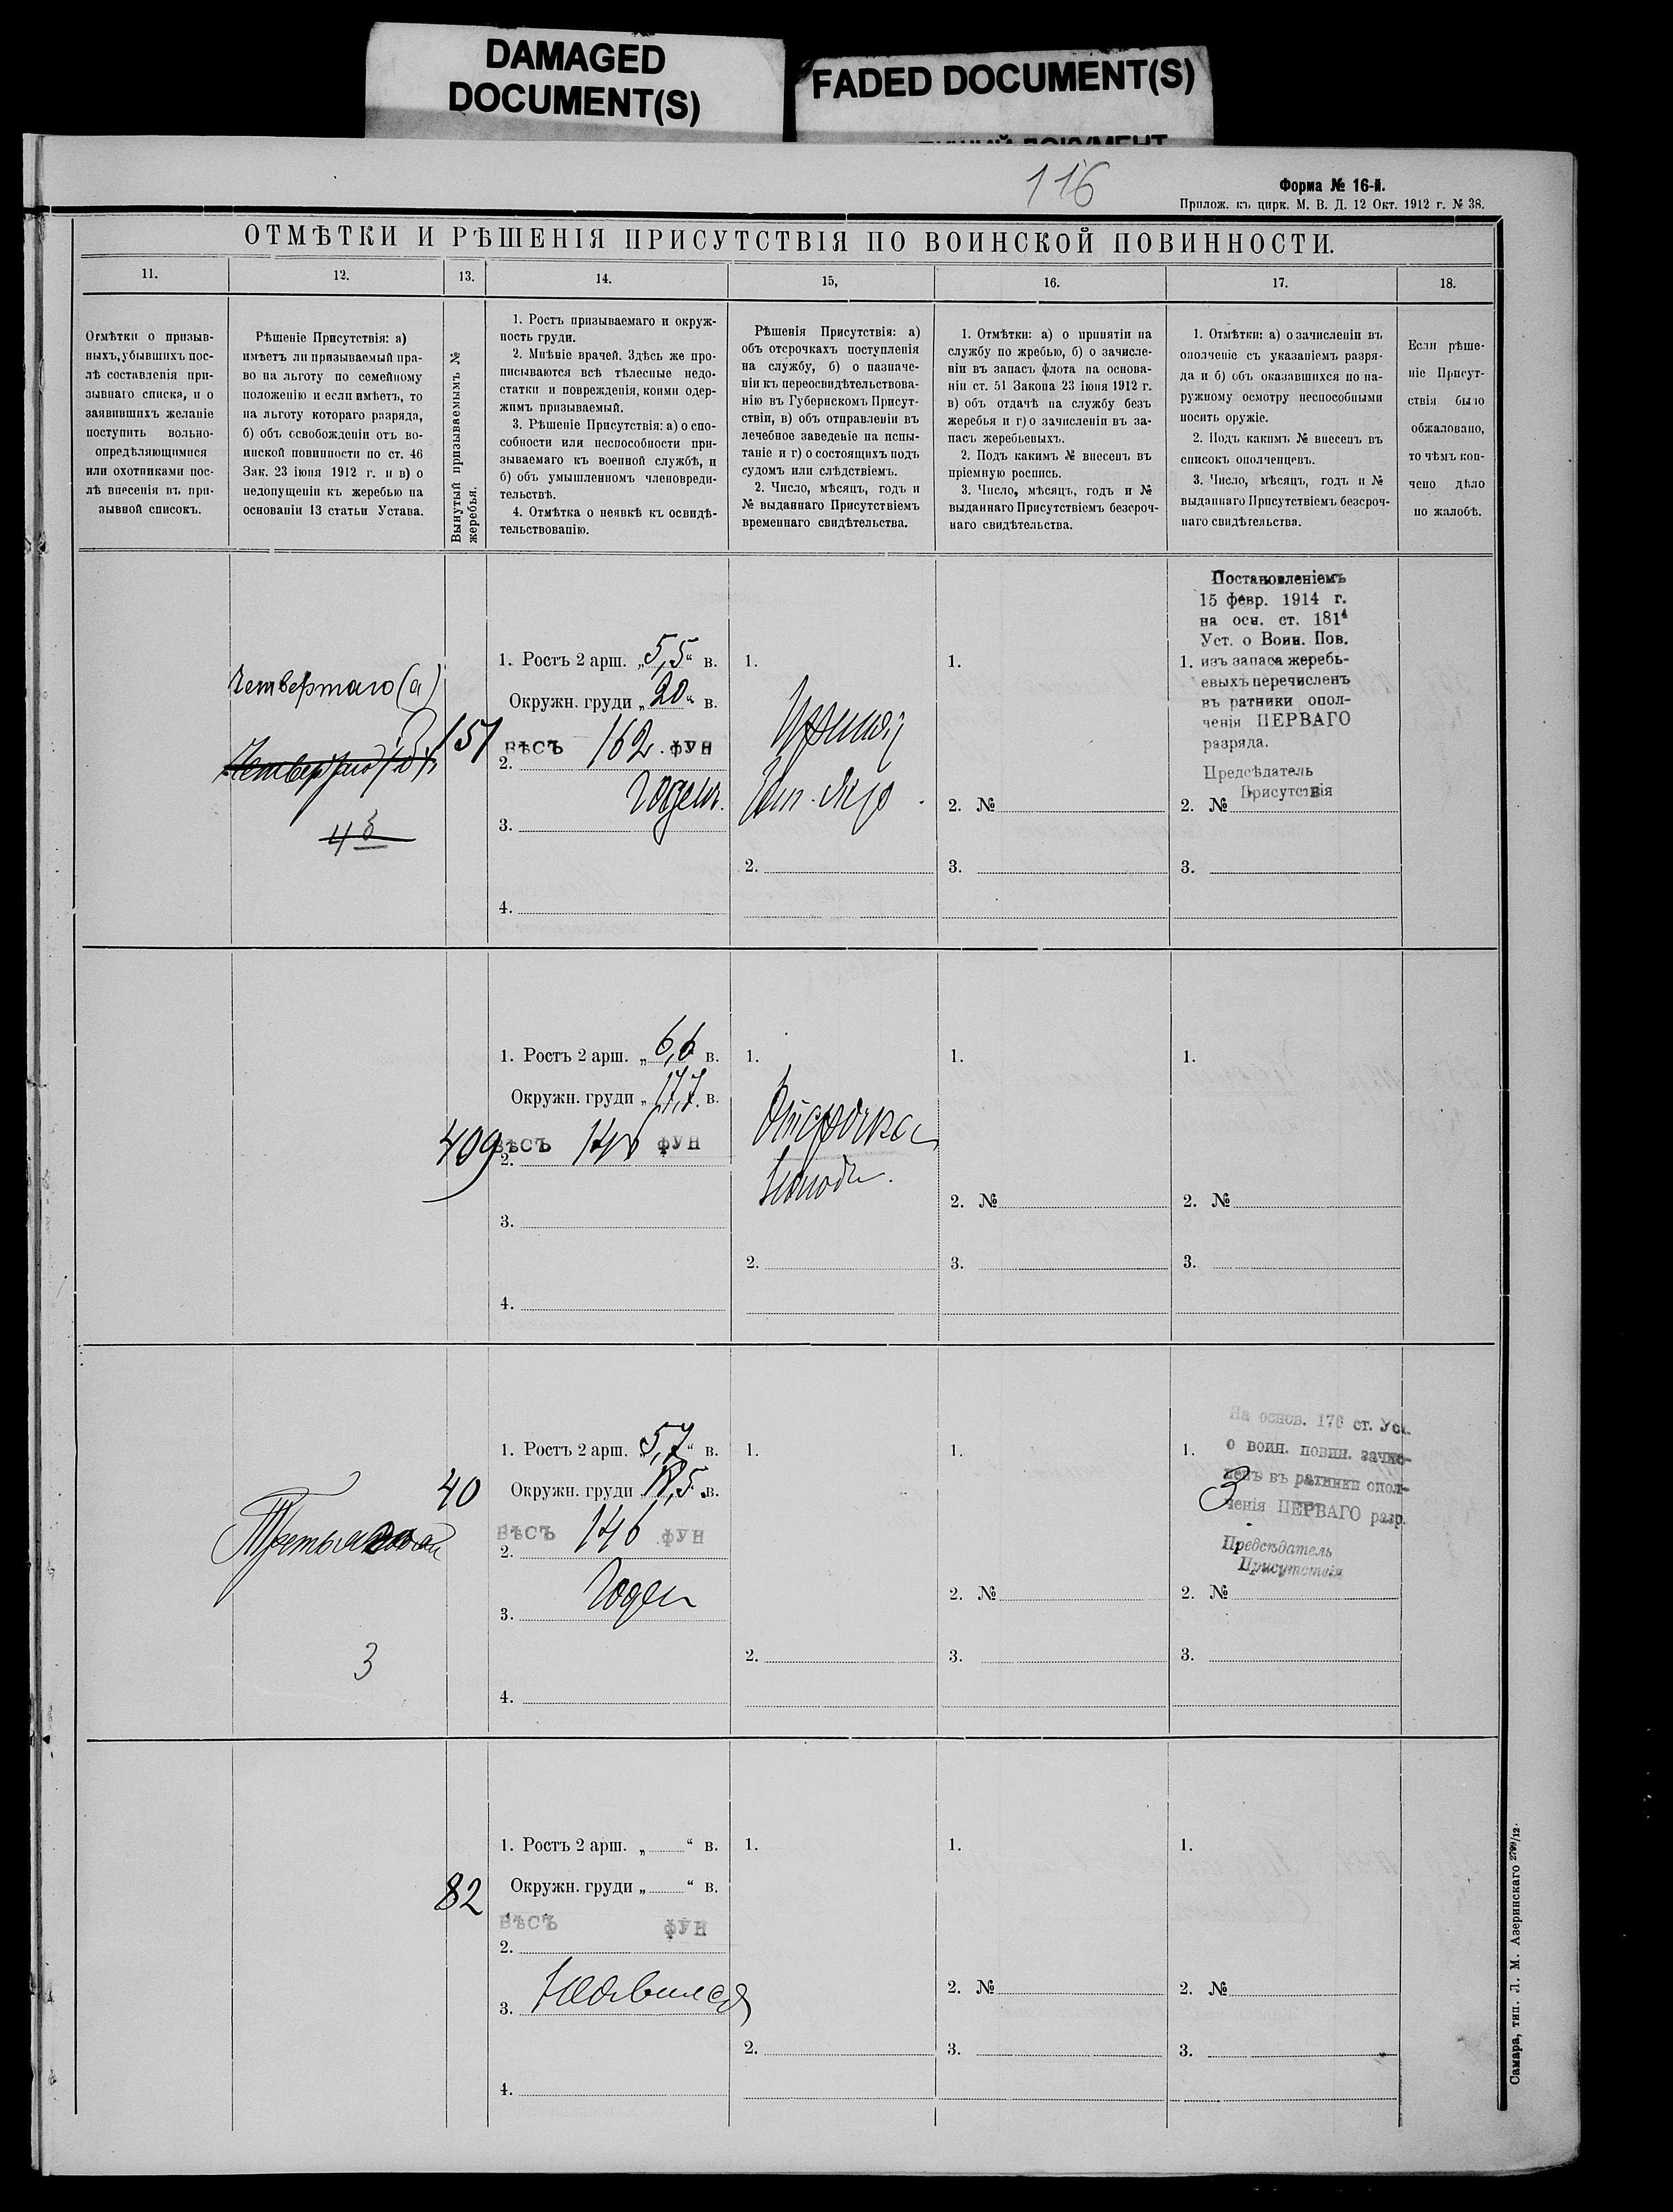 DAMAGED
DOCUMENT(S)
FADED DOCUMENT(S)
116
Форма № 16-й.
Прилож. къ цирк. М. В. Д. 12 Окт. 1912 г. № 38.
ОТМѢТКИ И РѢШЕНІЯ ПРИСУТСТВІЯ ПО ВОИНСКОЙ ПОВИННОСТИ.
11.
12.
13.
14.
15,
16.
17.
18.
Отмѣтки о призыв-
ныхъ, убывшихъ пос-
лѣ составленія при-
зывнаго списка, и о
заявившихъ желаніе
поступить вольно-
опредѣляющимися
или охотниками пос-
лѣ внесенія въ при-
зывной списокъ.
Рѣшеніе Присутствія: а)
имѣетъ ли призываемый пра-
во на льготу по семейному
положенію и если имѣетъ, то
на льготу котораго разряда,
б) объ освобожденіи отъ во-
инской повинности по ст. 46
Зак. 23 іюня 1912 г. и в) о
недопущеніи къ жеребью на
основаніи 13 статьи Устава.
Вынутый призываемымъ №
жеребья.
1. Ростъ призываемаго и окруж-
ность груди.
2. Мнѣніе врачей. Здѣсь же про-
писываются всѣ тѣлесные недо-
статки и поврежденія, коими одер-
жимъ призываемый.
3. Рѣшеніе Присутствія: а) о спо-
собности или неспособности при-
зываемаго къ военной службѣ, и
б) объ умышленномъ членовреди-
тельствѣ.
4. Отмѣтка о неявкѣ къ освидѣ-
тельствованію.
Рѣшенія Присутствія: а)
объ отсрочкахъ поступленія
на службу, б) о назначе-
ніи къ переосвидѣтельствова-
нію въ Губернскомъ Присут-
ствіи, в) объ отправленіи въ
лечебное заведеніе на испы-
таніе и г) о состоящихъ подъ
судомъ или слѣдствіемъ.
2. Число, мѣсяцъ, годъ и
№ выданнаго Присутствіемъ
временнаго свидѣтельства.
1. Отмѣтки: а) о принятіи на
службу по жребью, б) о зачисле-
ніи въ запасъ флота на основа-
ніи ст. 51 Закона 23 іюня 1912 г.
в) объ отдачѣ на службу безъ
жеребья и г) о зачисленіи въ за-
пасъ жеребьевыхъ.
2. Подъ какимъ № внесенъ въ
пріемную роспись.
3. Число, мѣсяцъ, годъ и №
выданнаго Присутствіемъ безсроч-
наго свидѣтельства.
1. Отмѣтки: а) о зачисленіи въ
ополченіе съ указаніемъ разря-
да и б) объ оказавшихся по на-
ружному осмотру неспособными
носить оружіе.
2. Подъ какимъ № внесенъ въ
списокъ ополченцевъ.
3. Число, мѣсяцъ, годъ и №
выданнаго Присутствіемъ безсроч-
наго свидѣтельства.
Если рѣше-
ніе Присут-
ствія было
обжаловано,
то чѣмъ кон-
чено дѣло
по жалобѣ.
Четвертаго (а)
4 б
151
1. Ростъ 2 арш. „5,5“ в.
Окружн. груди „20“ в.
ВѢСЪ 162 ФУН
2.
Годенъ.
3.
4.
1.
2.
1.
2. №
3.
Постановленіемъ
15 февр. 1914 г.
на осн. ст. 181⁴
Уст. о Воин. Пов.
1. изъ запаса жеребь-
евыхъ перечисленъ
въ ратники опол-
ченія ПЕРВАГО
разряда.
Предсѣдатель
Присутствія
2. №
3.
409
1. Ростъ 2 арш. „6,6 в.
Окружн. груди „17,7 в.
ВѢСЪ ФУН
2.
3.
4.
1.
Отсрочка
2.
1.
2. №
3.
1.
2. №
3.
3
40
1. Ростъ 2 арш. 5,7“ в.
Окружн. груди 18,5 в.
ВѢСЪ 146 ФУН
2.
Годен
3.
4.
1.
2.
1.
2. №
3.
На основ. 176 ст. Уст.
1. о воин. повин. зачис-
ленъ въ ратники опол-
3
ченія ПЕРВАГО разр.
Предсѣдатель
Присутствія
2. №
3.
82
1. Ростъ 2 арш. „ “ в.
Окружн. груди „ “ в.
ВѢСЪ ФУН
2.
Неявился
3.
4.
1.
2.
1.
2. №
3.
1.
2. №
3.
Самара, тип. Л. М. Азеринскаго 2799/12.